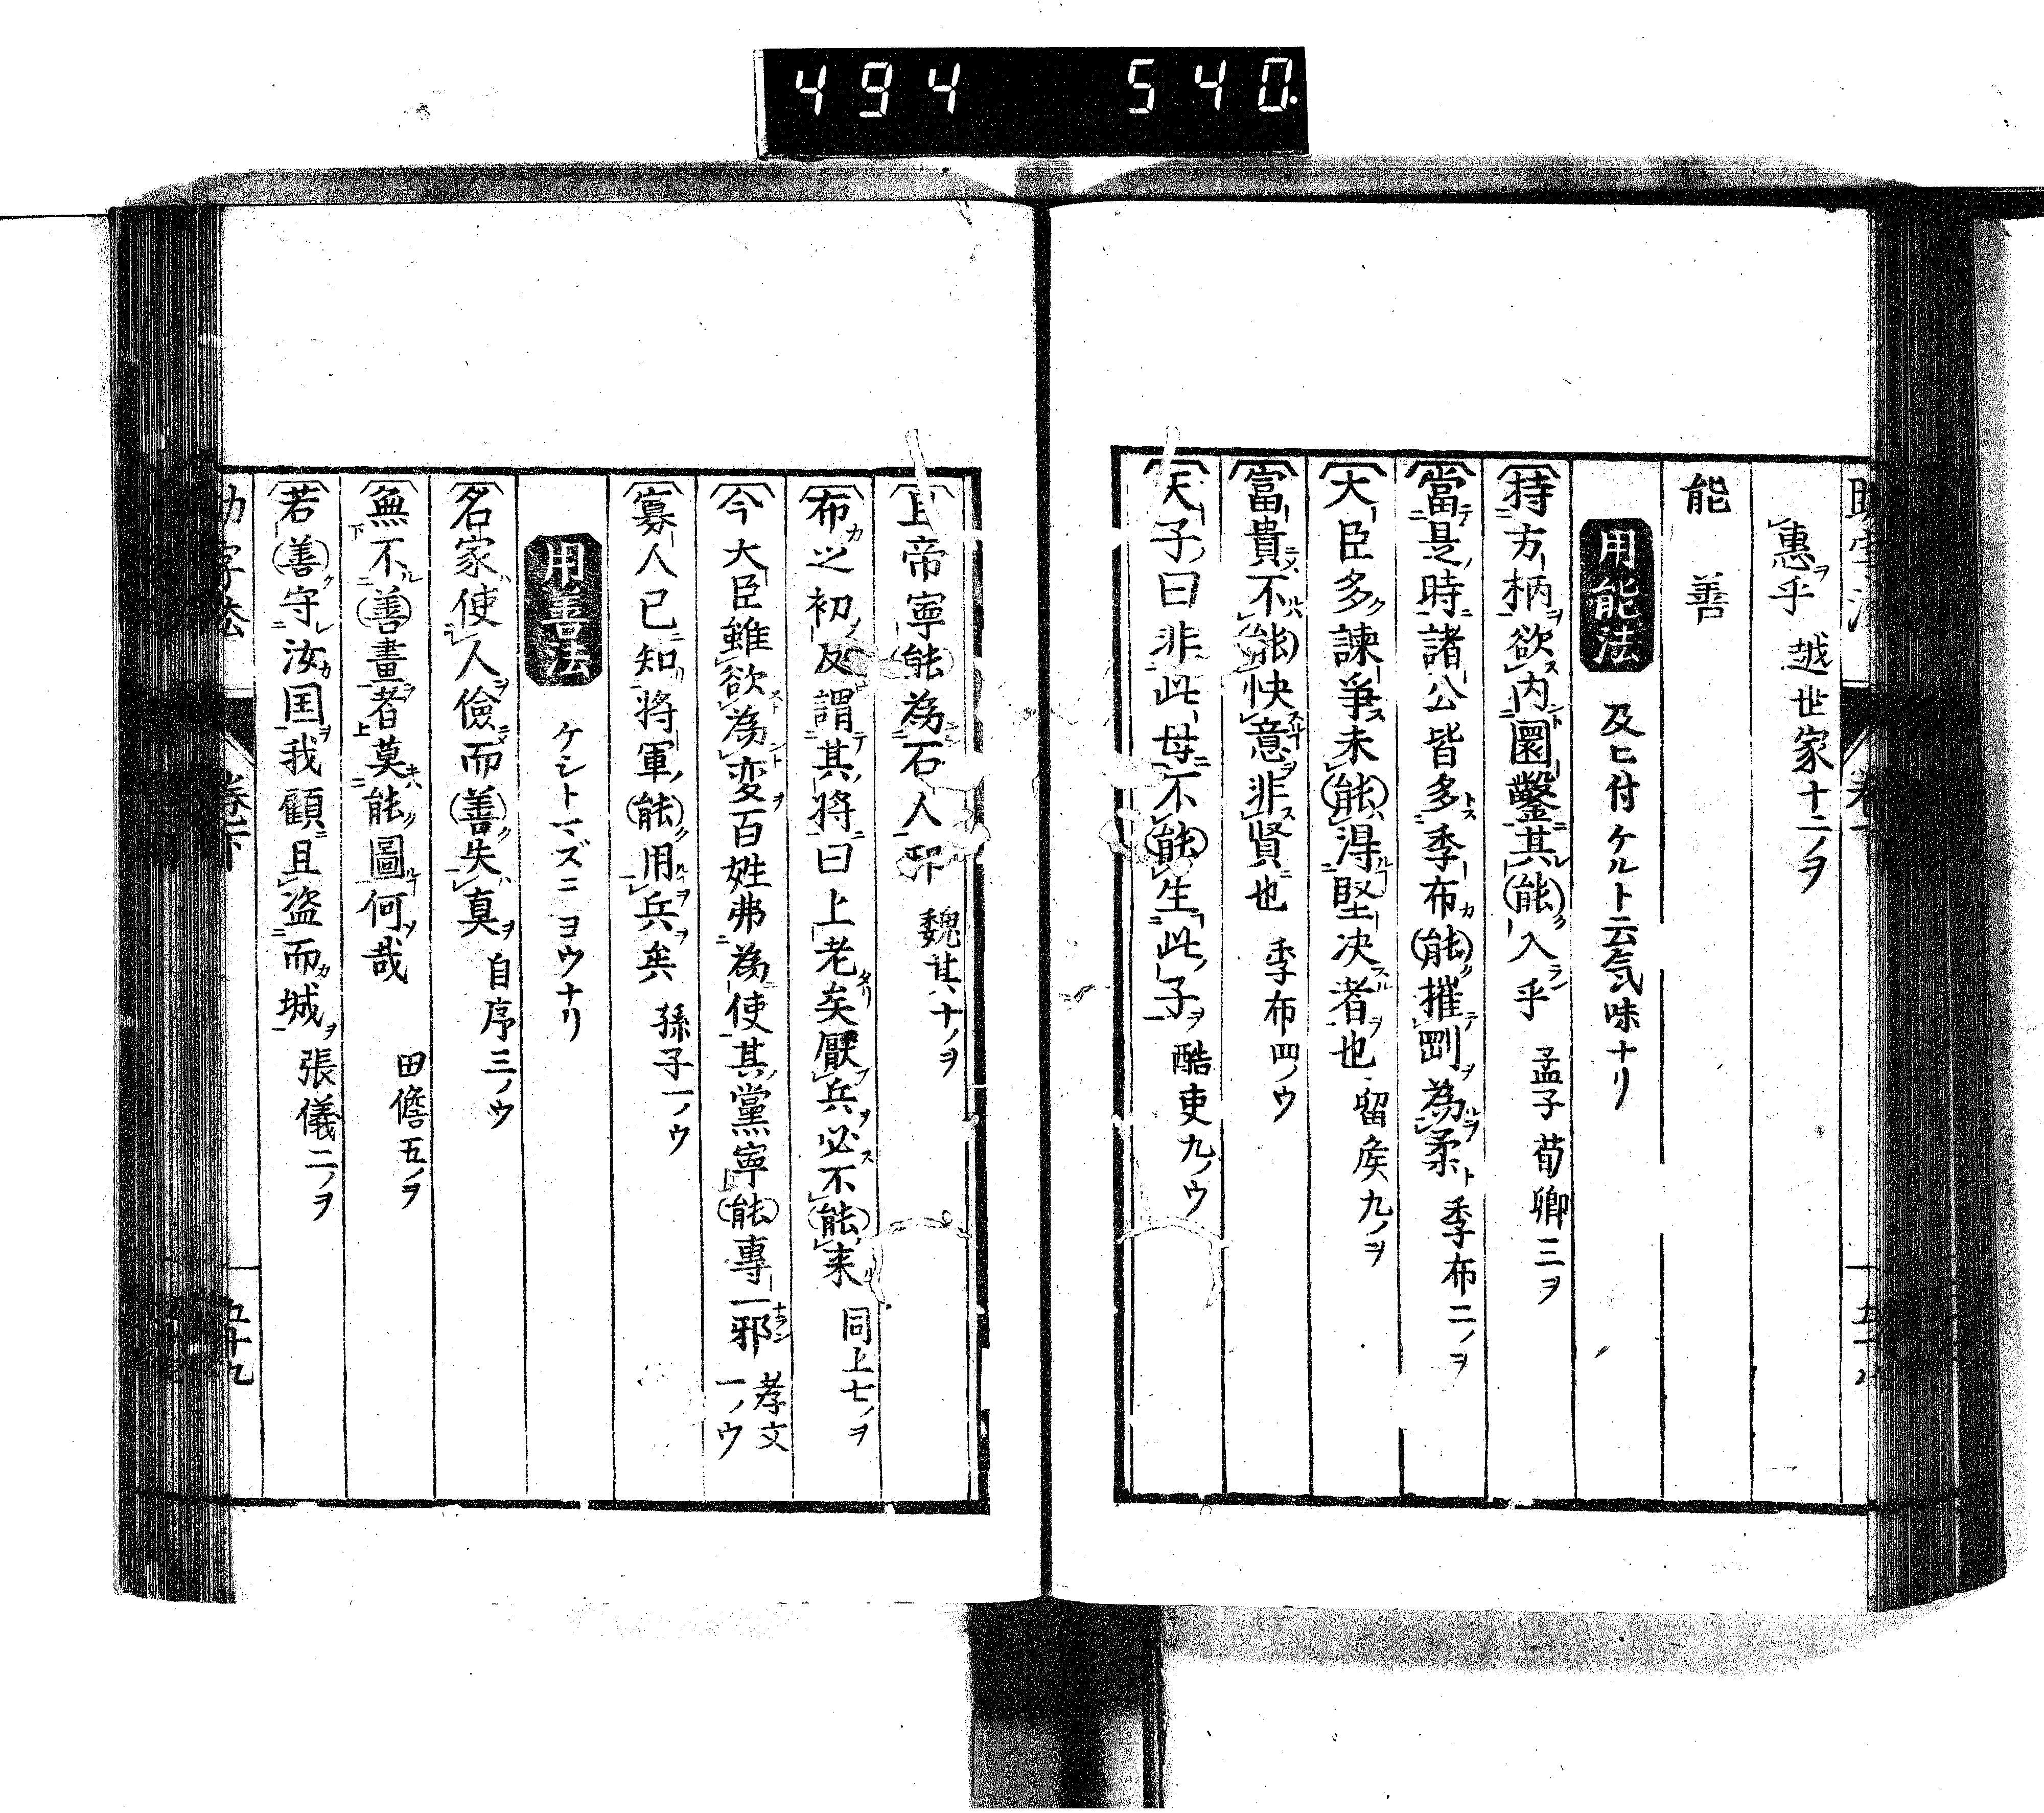 494 540.
惠乎 越世家十二ノヲ
能 善
用能法 及ヒ付ケルト云気味ナリ
持方柄欲内圜鑿其能入乎 孟子荀卿三ヲ
當是時諸公皆多季布能摧剛為柔 季布二ノヲ
大臣多諫爭未能得堅决者也 留矦九ノヲ
富貴不能快意非賢也 季布四ノウ
天子曰非此母不能生此子 酷吏九ノウ
且帝寧能為石人邪 魏其十ノヲ
布之初反謂其将曰上老矣厭兵必不能来 同上七ノヲ
今大臣雖欲為変百姓弗為使其黨寧能專一邪 孝文一ノウ
寡人已知将軍能用兵矣 孫子一ノウ
用善法 ケシトマズニヨウナリ
名家使人儉而善失真 自序三ノウ
無不善畫者莫能圖何哉 田儋五ノヲ
若善守汝国我顧且盗而城 張儀二ノヲ
五十九